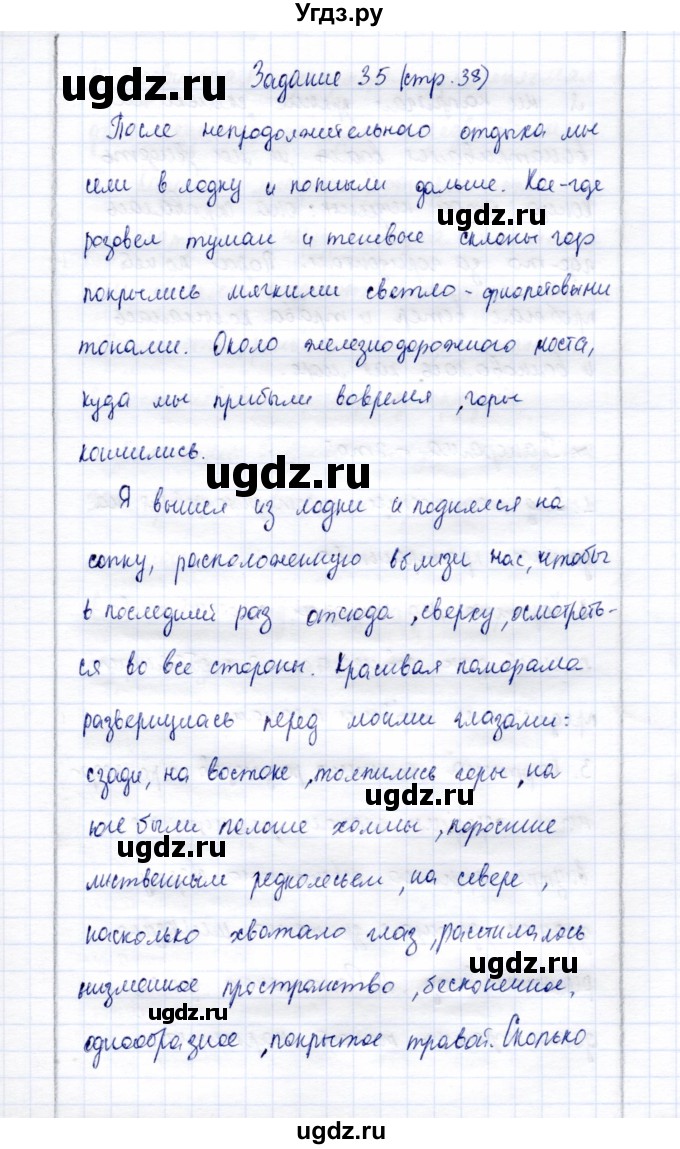 Угдз.ру
ugdz.ru
Задание 35 (стр. 38)
После непродолжительного отдыха мы
сели в лодку и поплыли дальше. Кое-где
ugdz.ru
розовел туман и теневые склоны гор
покрылись мягкими светло-фиолетовыми
тонами. Около железнодорожного моста,
ugdz.ru
куда мы прибыли вовремя, горы
кончились.
ugdz.ru
Я вышел из лодки и поднялся на
сопку, расположенную вблизи нас, чтобы
в последний раз отсюда, сверху, осмотреть-
ся во все стороны. Красивая панорама
развернулась перед моими глазами:
сзади, на востоке, толпились горы, на
ugdz.ru
юге были пологие холмы, поросшие
ugdz.ru
лиственным редколесьем, на севере,
насколько хватало глаз, расстилалось
ugdz.ru
низменное пространство, бесконечное,
ugdz.ru
однообразное, покрытое травой. Сколько
ugdz.ru